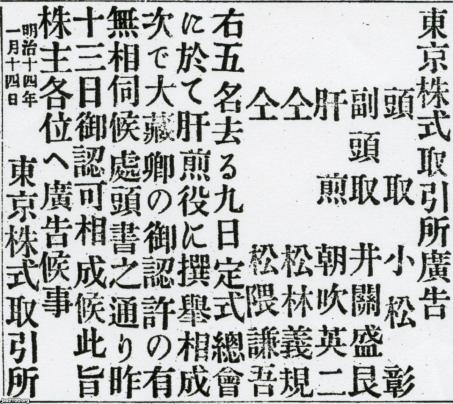 東京株式取引所廣告
頭取 小松彰
副頭取 井關盛艮
肝煎 朝吹英二
仝 松林義規
仝 松隈謙吾
右五名去る九日定式總會
に於て肝煎役に撰擧相成
次で大藏卿の御認許の有
無相伺候處頭書之通り昨
十三日御認可相成候此旨
株主各位へ廣告候事
明治十四年
一月十四日
東京株式取引所